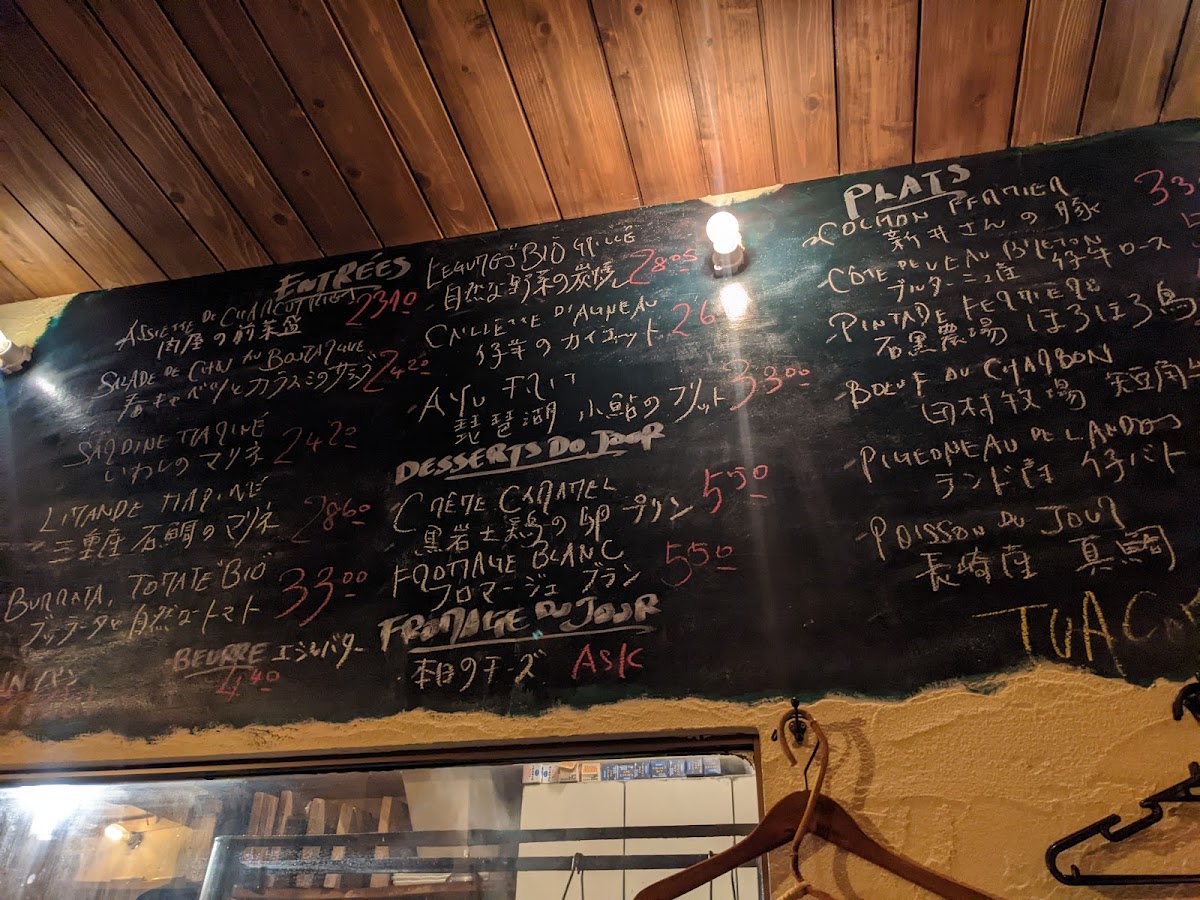 ENTRÉES
ASSIETTE DE CHARCUTERIES
肉屋の前菜盛 2310
SALADE DE CHOU AU BOUTARGUE
春キャベツとカラスミのサラダ 2420
SARDINE MARINÉ
いわしのマリネ 2420
LIMANDE MARINÉ
三重産 石鯛のマリネ 2860
BURRATA, TOMATE BIO
ブッラータと自然なトマト 3300
パン
BEURRE エシレバター
440
LEGUMES BIO GRILLÉ
自然な野菜の炭焼 2805
CAILLETTE D'AGNEAU
仔羊のカイエット 26
AYU FRIT
琵琶湖 小鮎のフリット 3300
DESSERTS DU JOUR
CRÈME CARAMEL
黒岩土鶏の卵 プリン 550
FROMAGE BLANC
フロマージュ ブラン 550
FROMAGE DU JOUR
本日のチーズ ASK
PLATS
COCHON FERMIER
新井さんの豚 33
CÔTE DE VEAU BRETON
ブルターニュ産 仔牛ロース
PINTADE FERMIERE
石黒農場 ほろほろ鳥
BOEUF AU CHARBON
田村牧場 短角牛
PIGEONEAU DE LANDES
ランド産 仔バト
POISSON DU JOUR
長崎産 真鯛